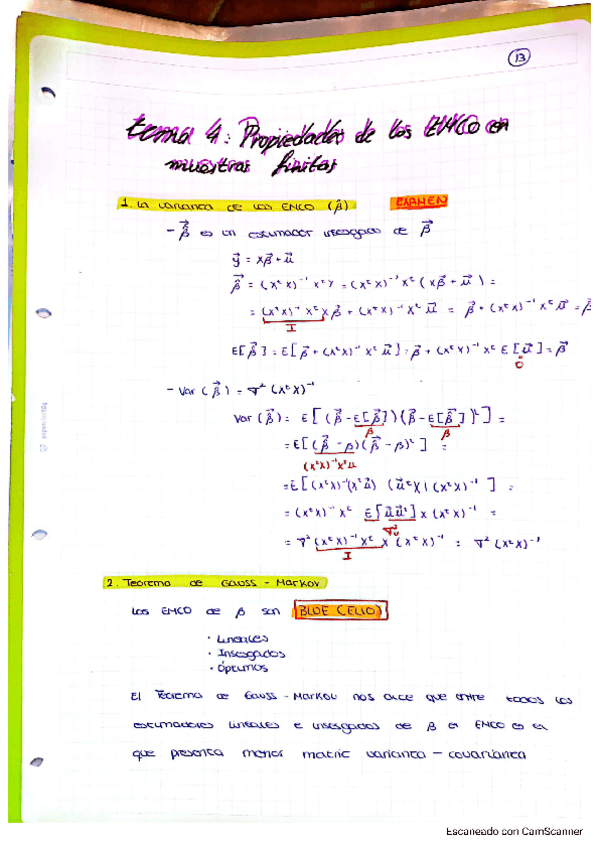 13
tema 4: Propiedades de los EMCO en
muestras finitas
1. La varianza de los EMCO (β̂) EXAMEN
- β̂ es un estimador insesgado de β⃗
y⃗ = Xβ⃗ + u⃗
β̂ = (XᵗX)⁻¹ XᵗY = (XᵗX)⁻¹Xᵗ (Xβ⃗ + u⃗) =
= (XᵗX)⁻¹ XᵗXβ⃗ + (XᵗX)⁻¹ Xᵗ u⃗ = β⃗ + (XᵗX)⁻¹ Xᵗ u⃗ = β
I
E[β̂] = E[β⃗ + (XᵗX)⁻¹ Xᵗ u⃗] = β⃗ + (XᵗX)⁻¹ Xᵗ E[u⃗] = β⃗
0⃗
- Var (β̂) = ∇² (XᵗX)⁻¹
Var (β̂) = E[(β̂ - E[β̂])(β̂ - E[β̂])ᵗ] =
β β
= E[(β̂ - β)(β̂ - β)ᵗ] =
(XᵗX)⁻¹Xᵗu
= E[(XᵗX)⁻¹(Xᵗu⃗) (u⃗ᵗX)((XᵗX)⁻¹] =
= (XᵗX)⁻¹ Xᵗ E[u⃗u⃗ᵗ] X (XᵗX)⁻¹ =
∇²
= ∇² (XᵗX)⁻¹ Xᵗ X (XᵗX)⁻¹ = ∇² (XᵗX)⁻¹
I
2. Teorema de Gauss - Markov
Los EMCO de β son BLUE (ELIO)
· Lineales
· Insesgados
· Óptimos
El Teorema de Gauss - Markov nos dice que entre todos los
estimadores lineales e insesgados de β el EMCO es el
que presenta menor matriz varianza - covarianza
Escaneado con CamScanner